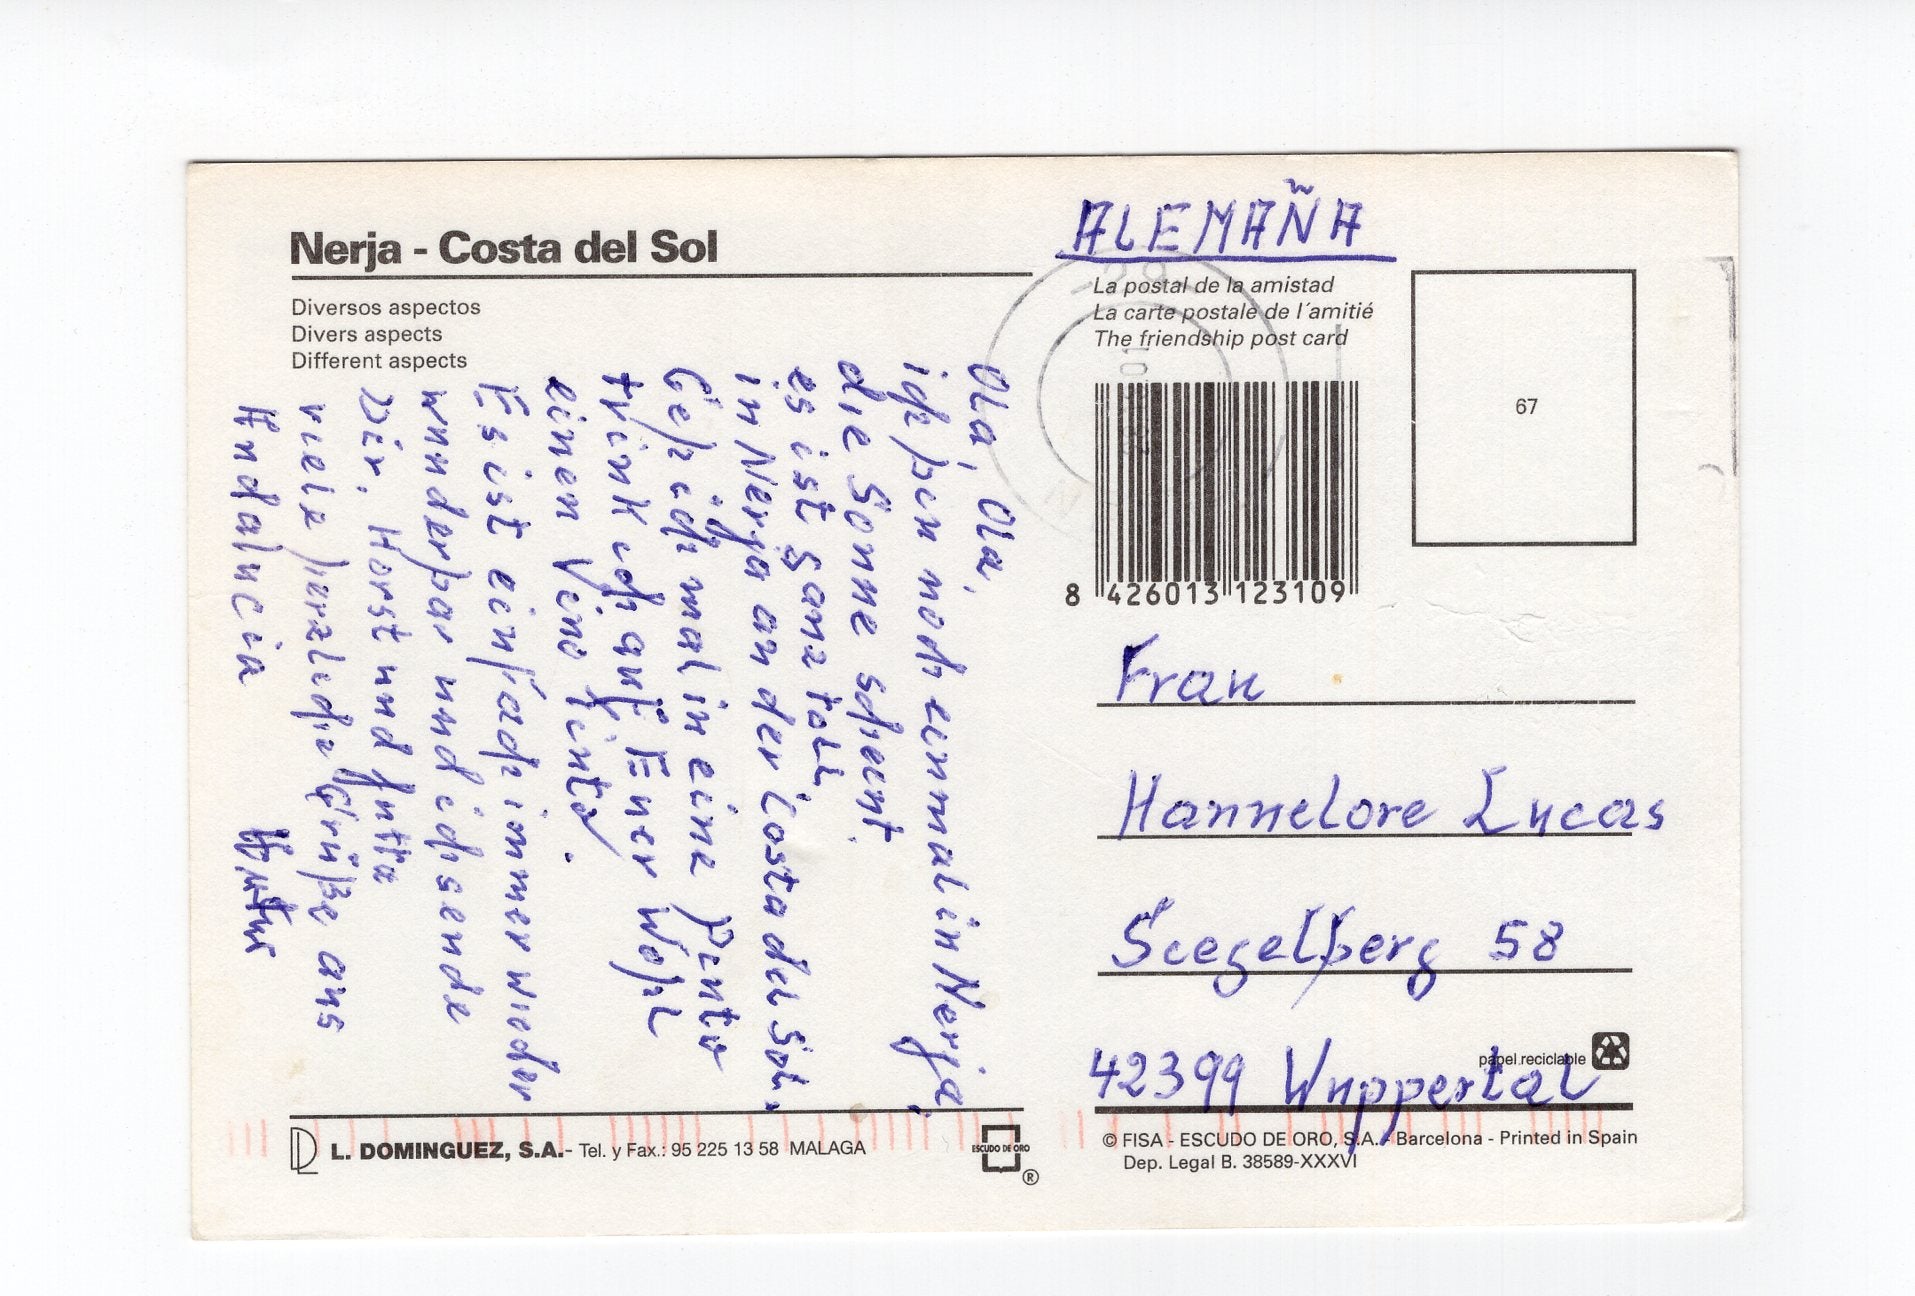 Nerja - Costa del Sol
Diversos aspectos
Divers aspects
Different aspects
Ola, Ola,
ich bin noch einmal in Nerja,
die Sonne scheint
es ist ganz toll
in Nerja an der Costa del Sol.
Geh ich mal in eine Pinto
trink ich auf Euer Wohl
einen Vino Tinto.
Es ist einfach immer wieder
wunderbar und ich sende
Dir, Horst und Jutta
viele herzliche Grüße aus
Andalucia
ALEMAÑA
La postal de la amistad
La carte postale de l´amitié
The friendship post card
67
8 426013 123109
Frau
Hannelore Lucas
Siegelberg 58
42399 Wuppertal
papel reciclable
L. DOMINGUEZ, S.A.- Tel. y Fax.: 95 225 13 58 MALAGA
ESCUDO DE ORO
®
© FISA - ESCUDO DE ORO, S.A. - Barcelona - Printed in Spain
Dep. Legal B. 38589-XXXVI